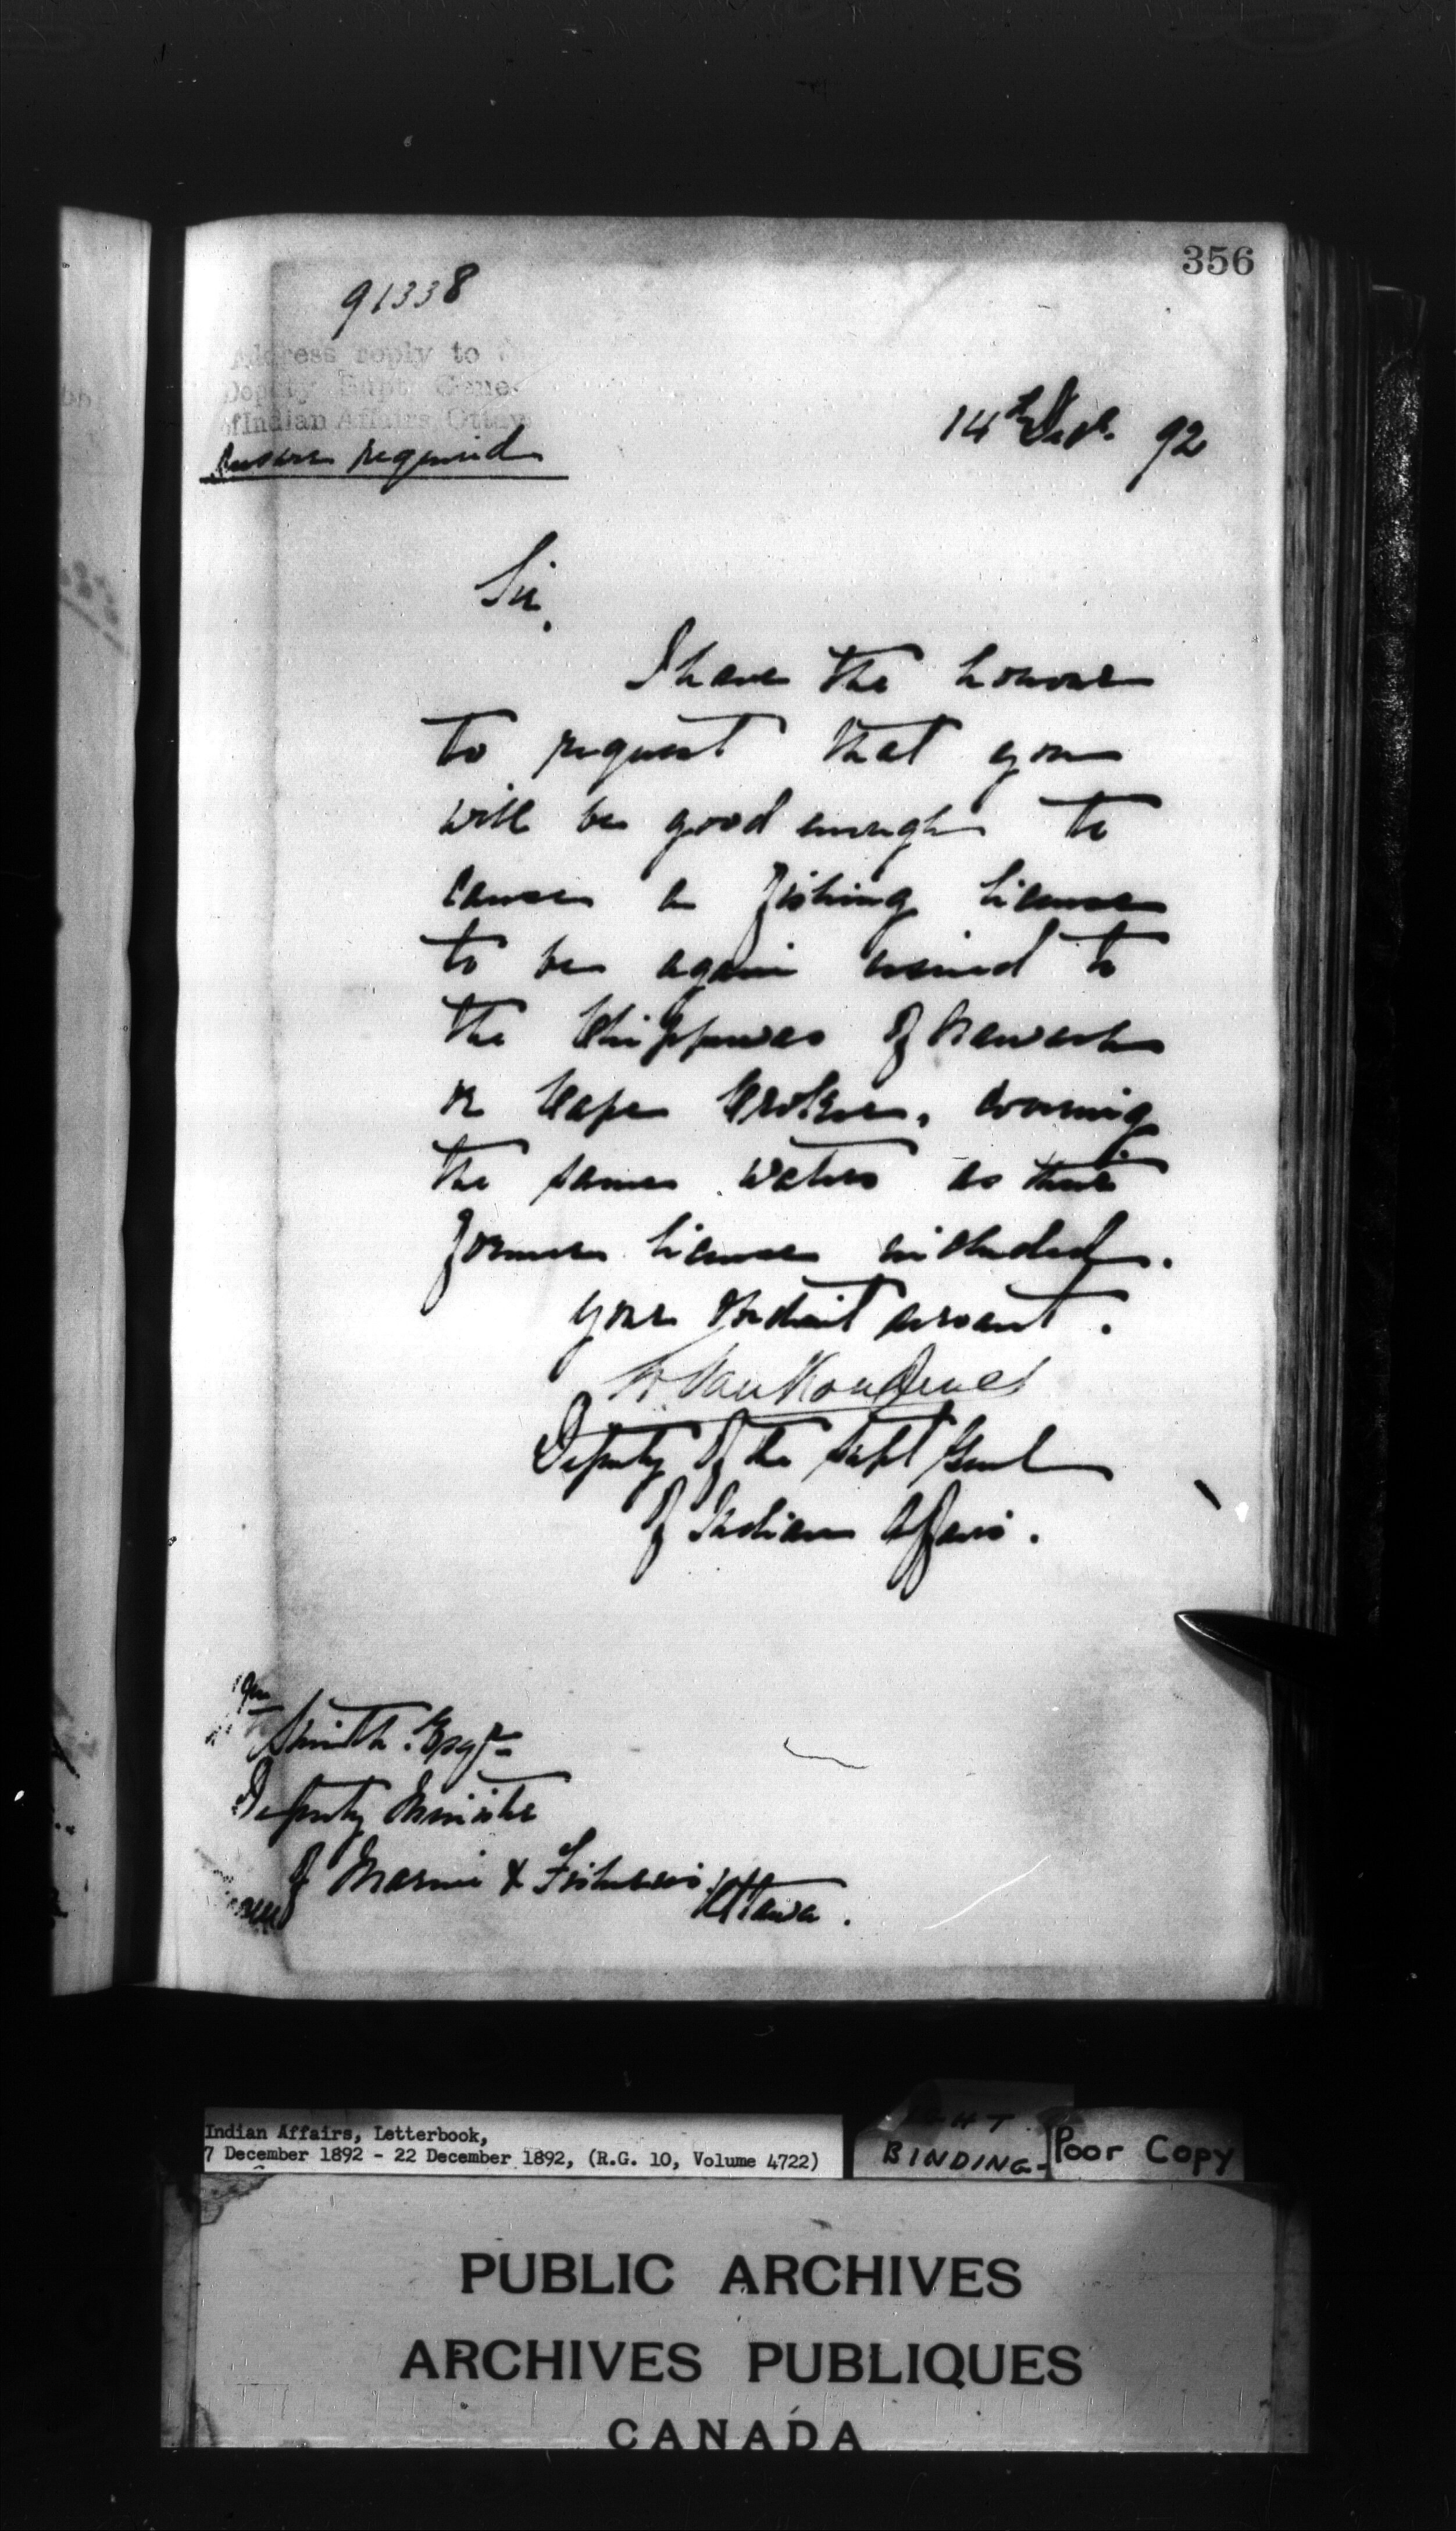 356
91338
Address reply to
Deputy Supt. Gene
of Indian Affairs, Ottaw
Answer required
14th Decr. 92
Sir,
I have the honour
to request that you
will be good enough to
cause a fishing license
to be again issued to
the Chippewas of Nawash
or Cape Croker, covering
the same waters as their
former license included.
Your obedient servant.
L. VanKoughnet
Deputy of the Supt Genl
of Indian Affairs.
Wm
Smith. Esqr
Deputy Minister
of Marine & Fisheries
Ottawa.
Indian Affairs, Letterbook,
7 December 1892 - 22 December 1892, (R.G. 10, Volume 4722)
BINDING-
Poor Copy
PUBLIC ARCHIVES
ARCHIVES PUBLIQUES
CANADA